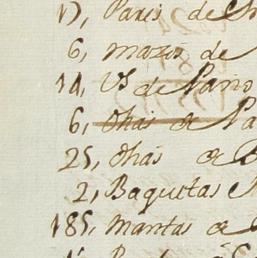 17, Pares de
6, mazos de
14, Vs de Paño
6, dhas de Pa
25, dhas de B
2, Baquetas
185, Mantas de